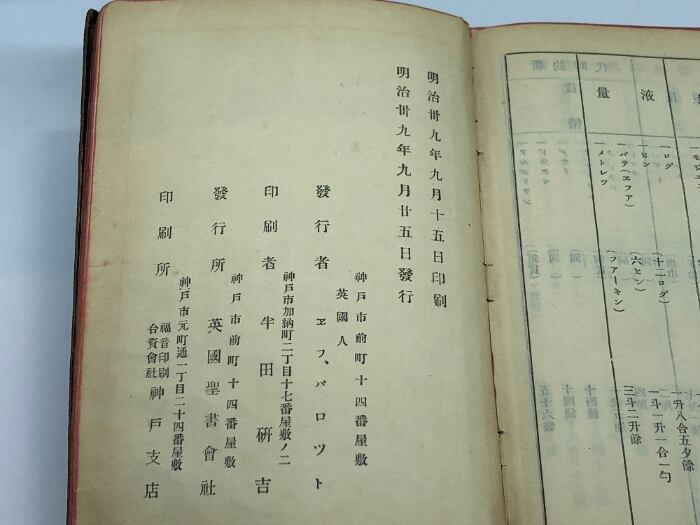 明治卅九年九月十五日印刷
明治卅九年九月廿五日發行
神戸市前町十四番屋敷
英國人
發行者 エフ、パロット
神戸市加納町二丁目十七番屋敷ノ二
印刷者 牛田研吉
神戸市前町十四番屋敷
發行所 英國聖書會社
神戸市元町通一丁目二十四番屋敷
印刷所 福音印刷合資會社神戸支店
一升八合五夕餘
液
一ログ
一ヒン (十二ログ) 一斗一升一合一勺
量
一バテ(エフア) (六ヒン) 三斗二升餘
一メトレツ (フアーキン)